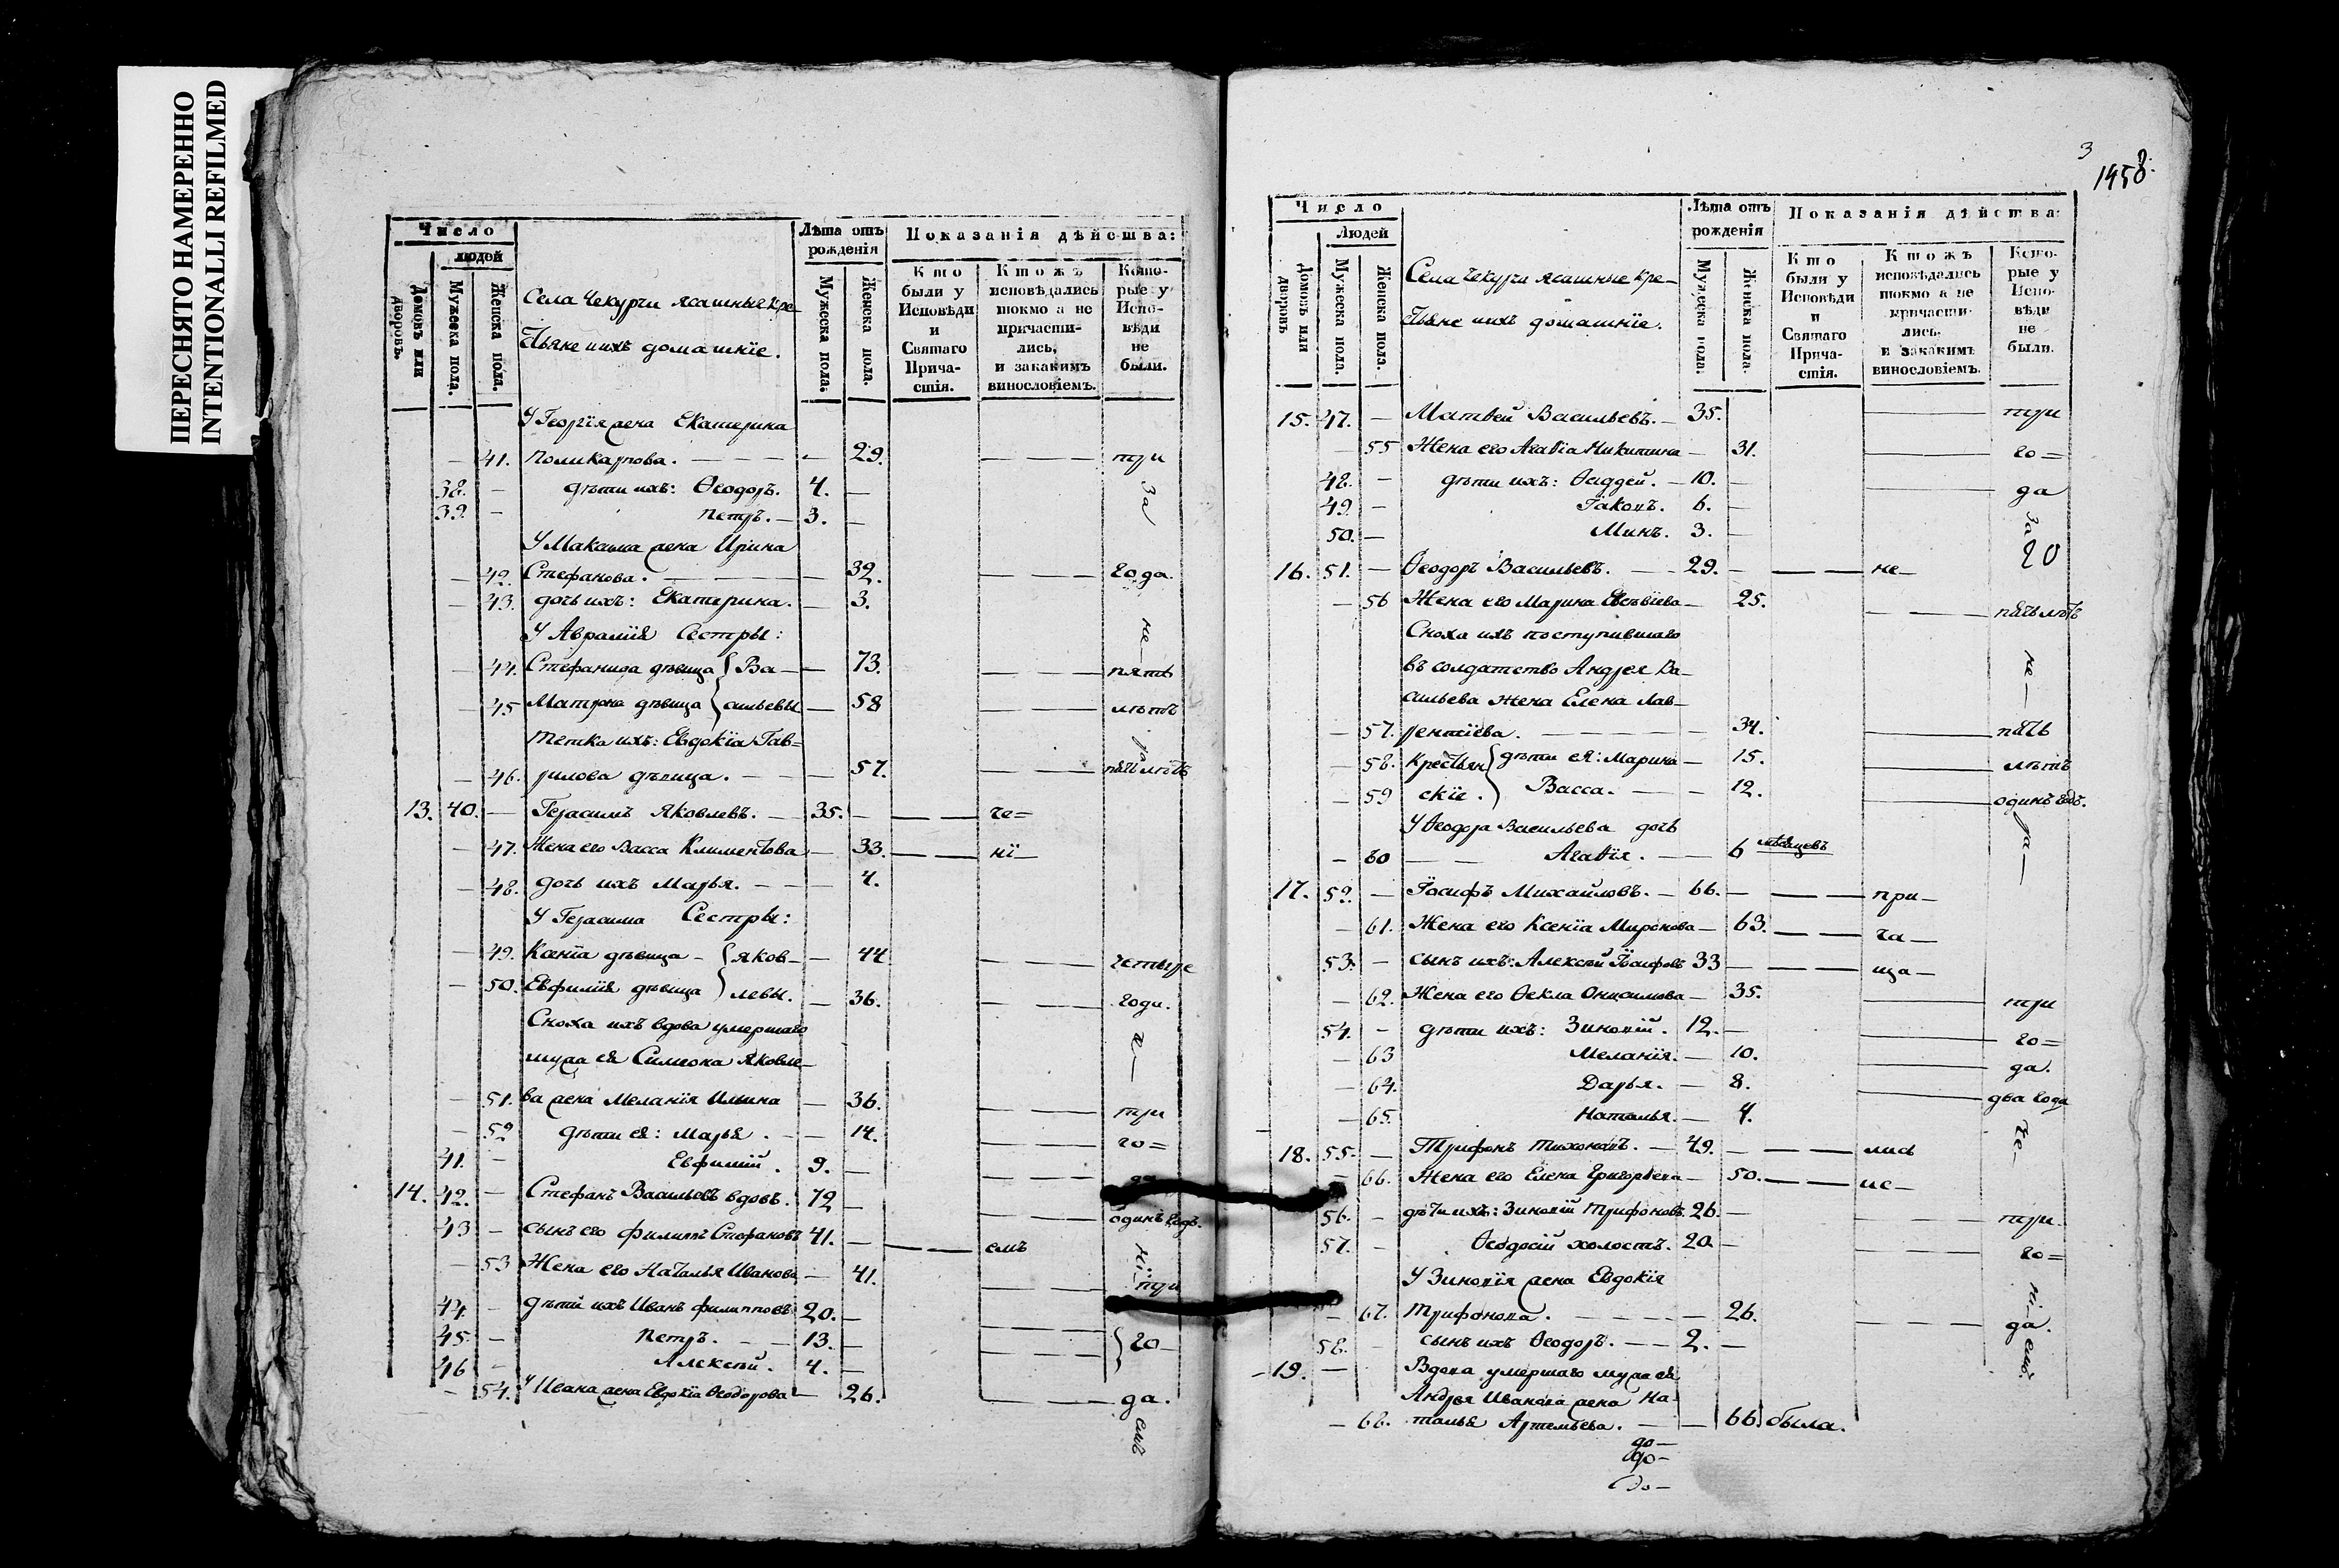 ПЕРЕСНЯТО НАМЕРЕННО
INTENTIONALLI REFILMED
Число
людей
Домовъ или дворовъ.
Мужеска пола.
Женска пола.
Села Чекурчи ясашныя кре-
стьяне и ихъ домашнїе.
Лѣта отъ рожденія
Мужеска пола.
Женска пола.
Показанія дѣйства:
Кто были у Исповѣди и Святаго Причастія.
Ктожъ исповѣдались токмо а не причастились, и закакимъ винословіемъ.
Которые у Исповѣди не были.
У Георгїя жена Екатерина
— 41. Поликарпова. — — — — 29. — — три
38. — дѣти ихъ: Ѳеодоръ. 4. —
За
39. — Петръ. — 3. —
У Максима жена Ирина
— 42. Стефанова. — — 32. — — года.
— 43. дочь ихъ: Екатерина. — 3.
У Авраамїя Сестры:
не—
— 44. Стефанида дѣвица { Ва— — 73. — — пять
— 45 Матрона дѣвица { сильевы — 58 — — лѣтъ
Тетка ихъ: Евдокїа Гав=
— 46. рилова дѣвица. — — 57. — — пять лѣтъ
13. 40. — Герасимъ Яковлевъ. — 35. — — — че=
— 47. Жена его Васса Климентова — 33. — — нї—
— 48. дочь ихъ Марья. — — — 4.
У Герасима Сестры:
— 49. Ксенїа дѣвица — { яков— — 44 — — четыре
— 50. Евфимїя дѣвица } левы. — 36. — — годи.
Сноха ихъ вдова умершаго
мужа ея Симеона Яковле—
— 51. ва жена Меланїя Ильина — 36. — — три
— 52 дѣти ея: Марья. — — 14. — — го=
41. — Евфимїй. 9. — — —
14. 42. — Стефанъ Васильевъ вдовъ. 72 — — — одинъ годъ.
43 — сынъ его Филиппъ Стефановъ 41. — — — емъ
— 53 Жена его Наталья Иванова — 41. — три
44. — дѣти ихъ Иванъ Филипповъ 20. —
45. — Петръ. — — 13. — — — } го—
46 — Алексѣй. 4. — — —
— 54. У Ивана жена Евдокїа Ѳеодорова — 26. — — да.
емъ
3
1458.
Число
Людей
Домовъ или дворовъ
Мужеска пола.
Женска пола.
Села Чекурчи ясашные кре—
стьяне ихъ домашнїе.
Лѣта отъ рожденія
Мужеска пола.
Женска пола.
Показанія дѣйства:
Кто были у Исповѣди и Святаго Причастія.
Ктожъ исповѣдались токмо а не причастились, и закакимъ винословіемъ.
Которые у Исповѣди не были.
15. 47. — Матвей Васильевъ. — 35. — три
— 55 Жена его Агаѳїа Никитина — 31. — го=
48. — дѣти ихъ: Ѳаддей. — 10. — — да
49. — Їаковъ. 6. —
За
50. — Минъ. 3. —
20
16. 51. — Ѳеодоръ Васильевъ. — — 29. — — — не—
— 56 Жена его Марина Евсевїева — 25. — — пять лѣтъ
Сноха ихъ поступившаго
въ солдатство Андрея Ва—
не—
сильева жена Елена Лав—
— 57. рентїева. — — — — — 34. — пять
— 58. Крестьян } дѣти ея: Марина — 15. — лѣтъ
— 59 скїе. } Васса. — — — 12. — одинъ годъ.
У Ѳеодора Васильева дочь
— 60 — — Агаѳїя. — — 6 мѣсяцевъ
17. 52. — Їосифъ Михайловъ. — 66. — — — при—
— 61. Жена его Ксенїа Миронова — 63. — — ча—
53. — сынъ ихъ: Алексѣй Їосифовъ 33 — — — ща—
— 62. Жена его Ѳекла Онисимова — 35. — три
54. — дѣти ихъ: Зиновїй. 12. — — го=
— 63 Меланїя. — 10. — да.
— 64. Дарья. — 8. — два года
— 65. Наталья. — 4.
че—
18. 55. — Трифонъ Тихоновъ. — 49. — — — лись
— 66. Жена его Елена Григорьева — 50. — — ис—
56. — дѣти ихъ: Зиновїй Трифоновъ 26. — — — три.
57. — Ѳеодосїй холостъ. 20. — — — го=
У Зиновїя жена Евдокїя
нї—
— 67. Трифонова. — — — — 26. — — да.
58. — сынъ ихъ Ѳеодоръ. — — 2. —
емъ.
— 19. — Вдова умершаго мужа ея
Андрея Иванова жена На-
— 68. талья Артемьева. — — 66. была.
до—
до—
до—